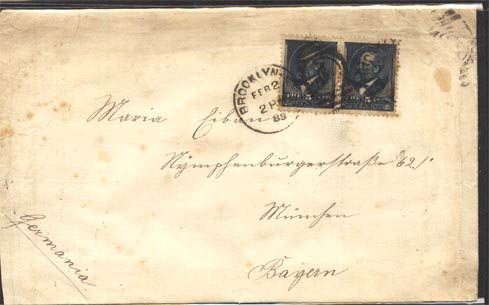 BROOKLYN
FEB 2
2 P
89
5 5
Maria Eiban
Nymphenburgerstraße 62/1
München
Bayern
Germania